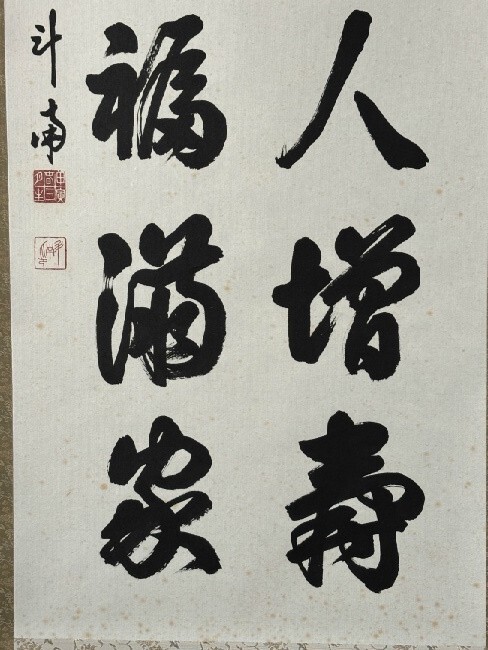 人增壽
福滿家
斗南